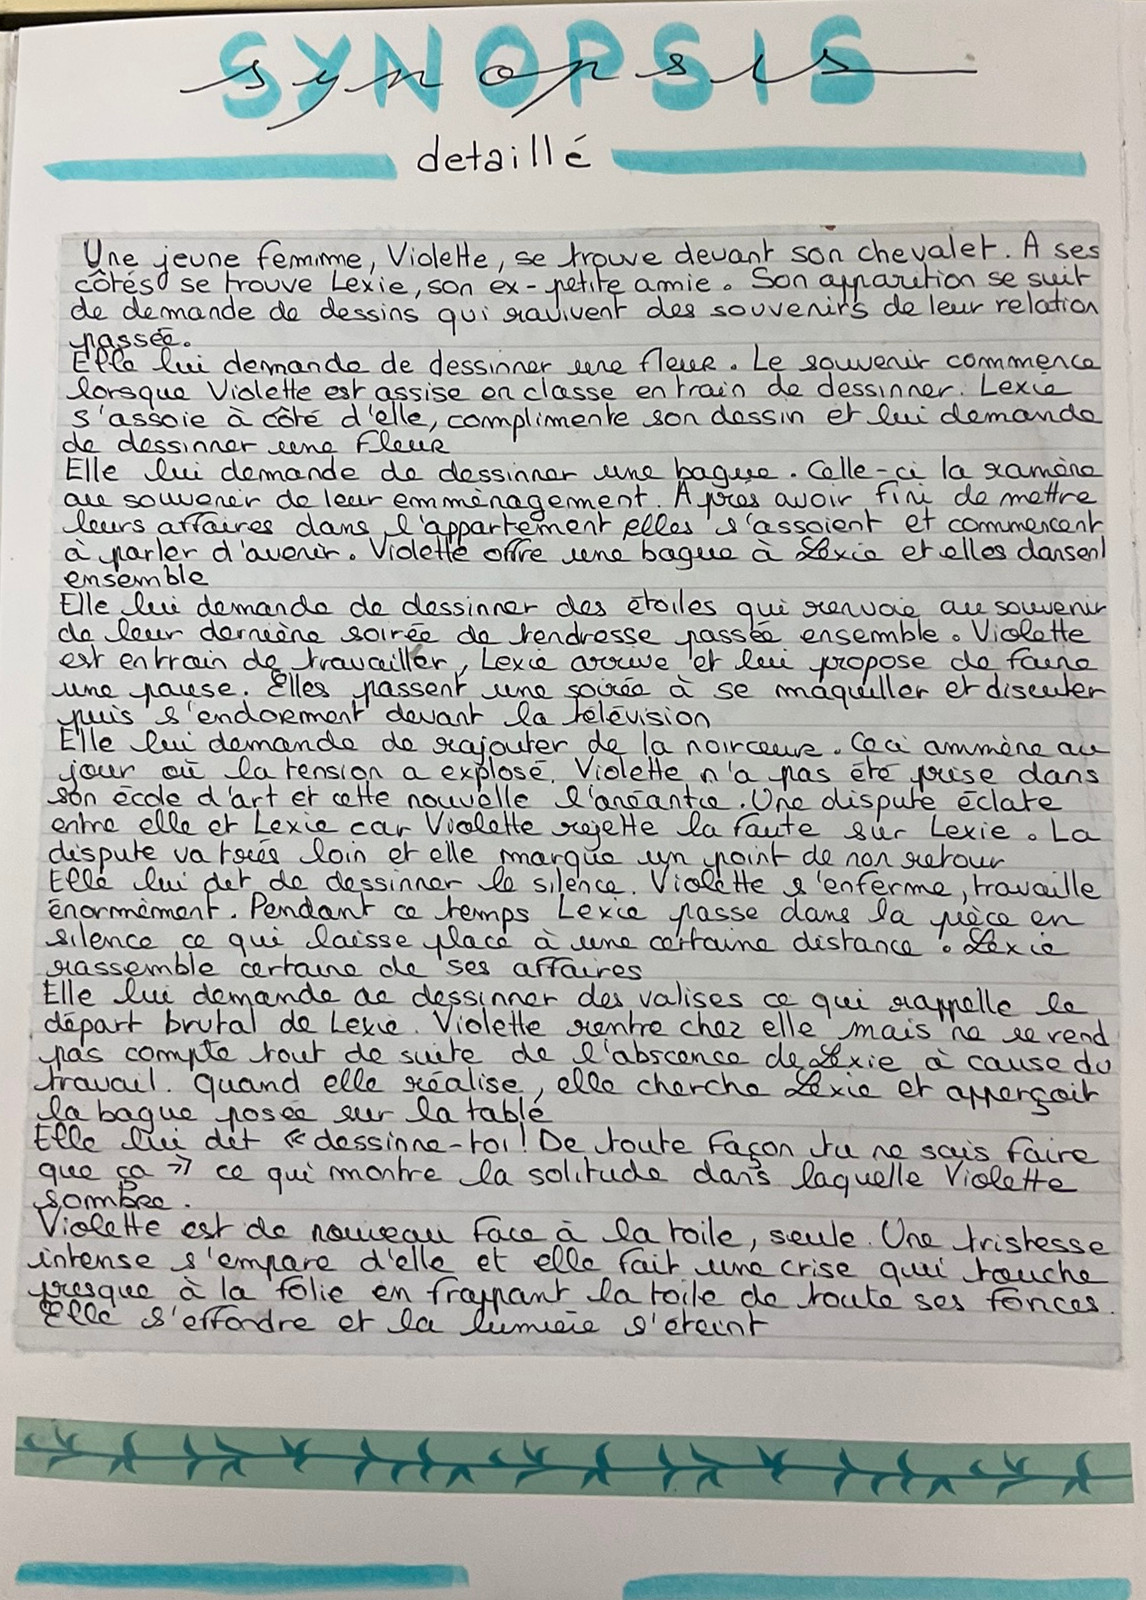 SYNOPSIS
synopsis
detaillé
Une jeune femme, Violette, se trouve devant son chevalet. A ses
côtés se trouve Lexie, son ex-petite amie. Son apparition se suit
de demande de dessins qui ravivent des souvenirs de leur relation
passée.
Elle lui demande de dessinner une fleur. Le souvenir commence
lorsque Violette est assise en classe entrain de dessinner. Lexie
s'assoie à côté d'elle, complimente son dessin et lui demande
de dessinner une fleur
Elle lui demande de dessinner une bague. Celle-ci la ramène
au souvenir de leur emménagement. Apres avoir fini de mettre
leurs affaires dans l'appartement elles s'assoient et commencent
à parler d'avenir. Violette offre une bague à Lexie et elles dansent
ensemble
Elle lui demande de dessinner des étoiles qui renvoie au souvenir
de leur dernière soirée de tendresse passée ensemble. Violette
est entrain de travailler, Lexie arrive et lui propose de faire
une pause. Elles passent une soirée à se maquiller et discuter
puis s'endorment devant la télévision
Elle lui demande de rajouter de la noirceur. Ceci ammène au
jour où la tension a explosé. Violette n'a pas été prise dans
son école d'art et cette nouvelle l'anéantie. Une dispute éclate
entre elle et Lexie car Violette rejette la faute sur Lexie. La
dispute va très loin et elle marque un point de non retour
Elle lui dit de dessinner le silence. Violette s'enferme, travaille
énormément. Pendant ce temps Lexie passe dans la pièce en
silence ce qui laisse place à une certaine distance. Lexie
rassemble certaine de ses affaires
Elle lui demande de dessinner des valises ce qui rappelle le
départ brutal de Lexie. Violette rentre chez elle mais ne se rend
pas compte tout de suite de l'abscence de Lexie à cause du
travail. Quand elle réalise, elle cherche Lexie et apperçoit
la bague posée sur la table
Elle lui dit « dessinne-toi! De toute façon tu ne sais faire
que ça » ce qui montre la solitude dans laquelle Violette
sombre.
Violette est de nouveau face à la toile, seule. Une tristesse
intense s'empare d'elle et elle fait une crise qui touche
presque à la folie en frappant la toile de toute ses forces.
Elle s'effondre et la lumière s'éteint